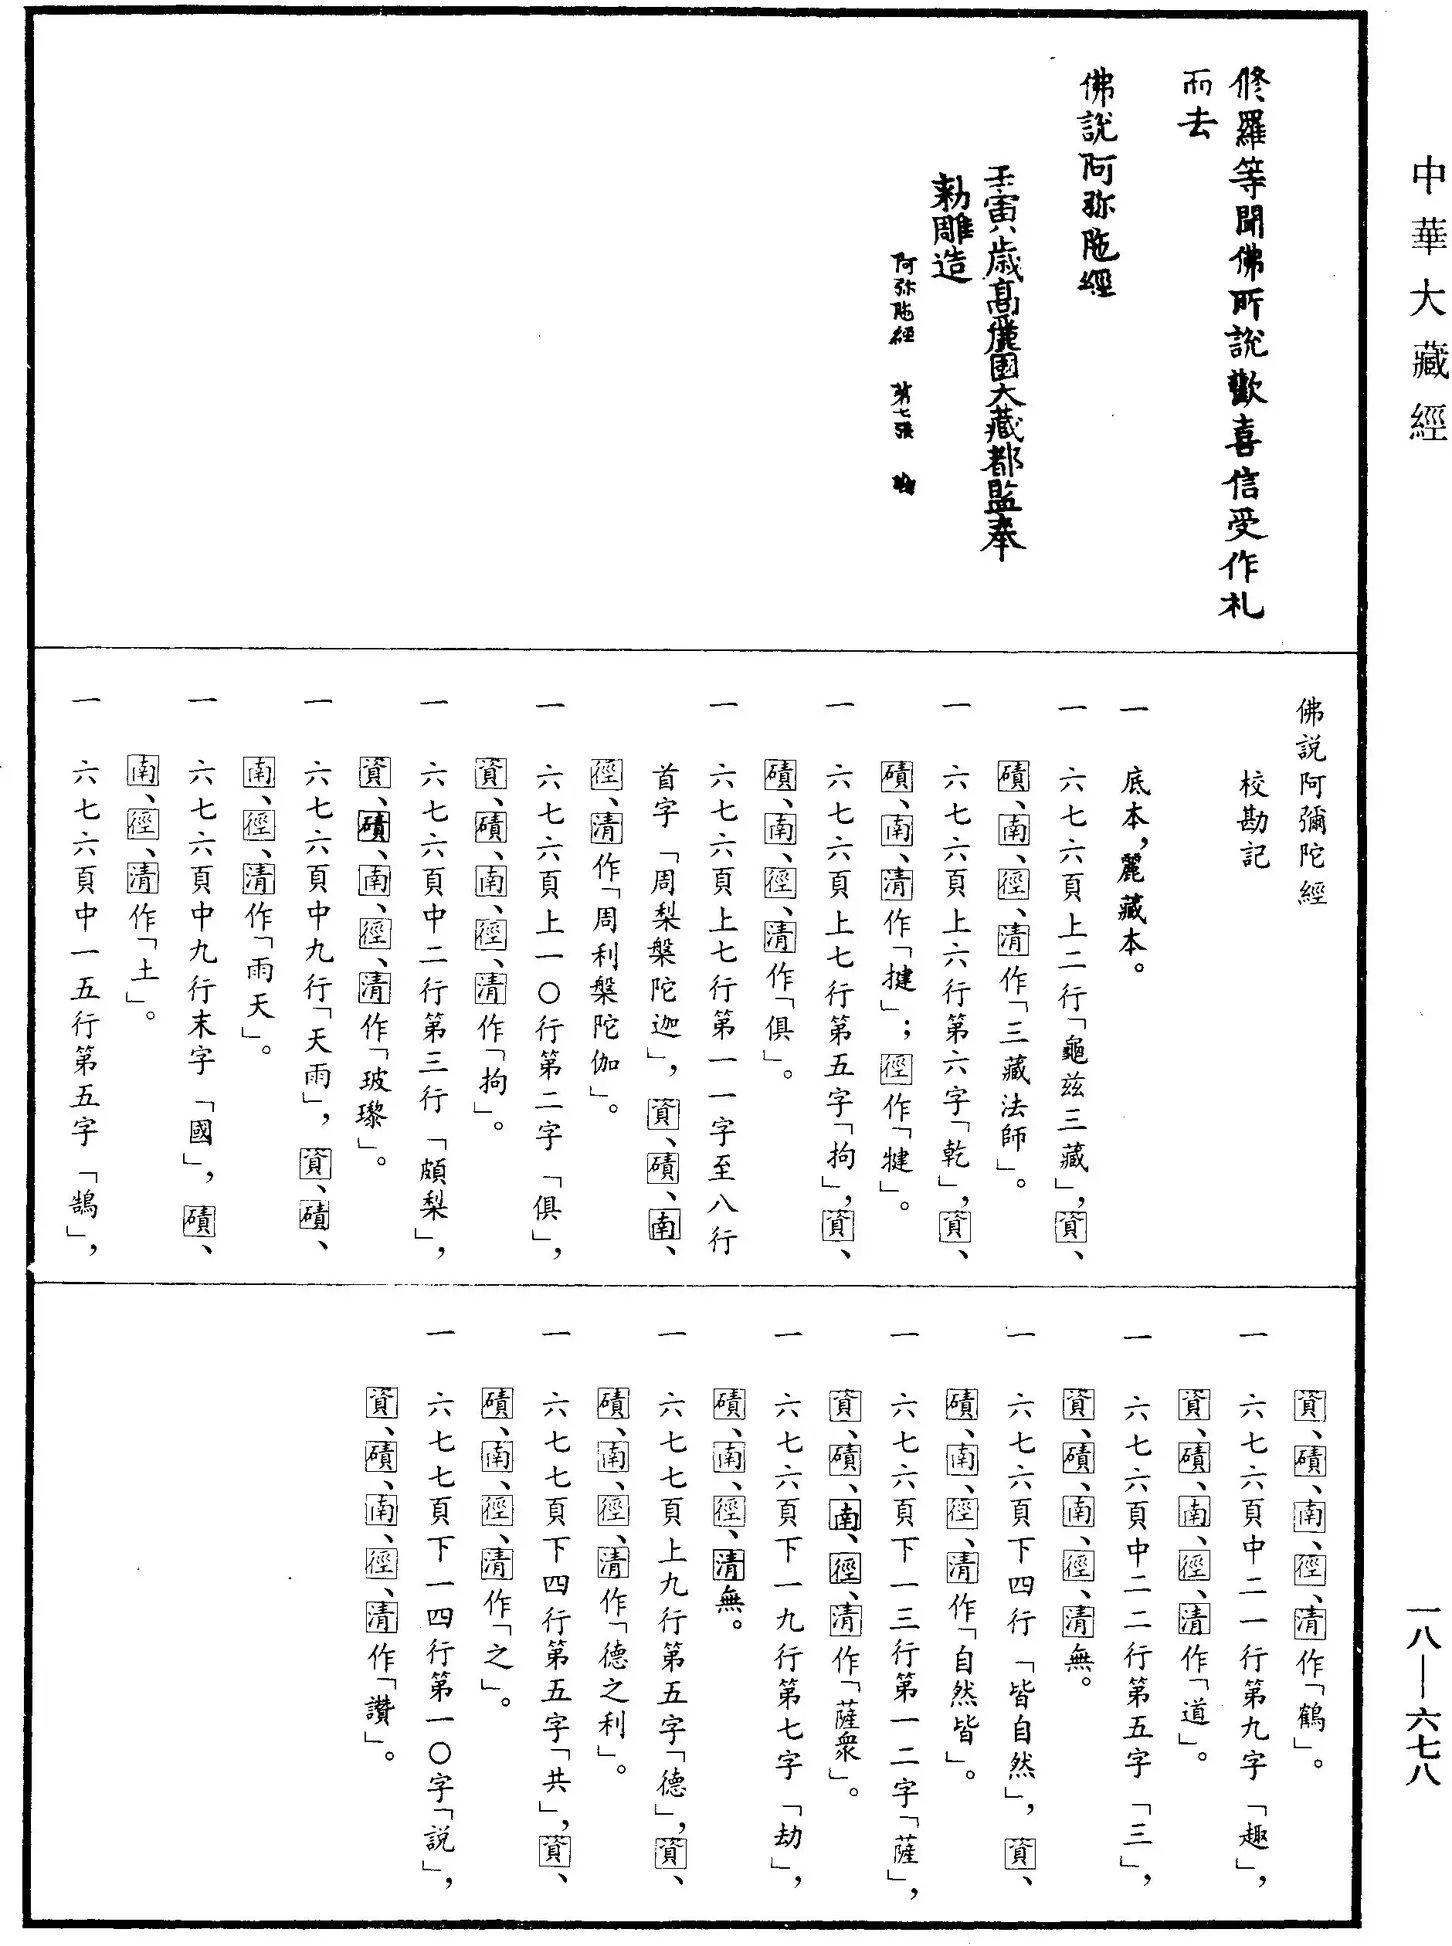 中華大藏經
修羅等聞佛所說歡喜信受作礼
而去
佛說阿弥陁經
壬寅歲高麗國大藏都監奉
勑雕造
阿弥陁經 第七張
佛說阿彌陀經
校勘記
一 底本，麗藏本。
一 六七六頁上二行「龜茲三藏」，資、
磧、南、徑、清作「三藏法師」。
一 六七六頁上六行第六字「乾」，資、
磧、南、清作「揵」；徑作「犍」。
一 六七六頁上七行第五字「拘」，資、
磧、南、徑、清作「俱」。
一 六七六頁上七行第一一字至八行
首字「周梨槃陀迦」，資、磧、南、
徑、清作「周利槃陀伽」。
一 六七六頁上一〇行第二字「俱」，
資、磧、南、徑、清作「拘」。
一 六七六頁中二行第三行「頗梨」，
資、磧、南、徑、清作「玻瓈」。
一 六七六頁中九行「天雨」，資、磧、
南、徑、清作「雨天」。
一 六七六頁中九行末字「國」，磧、
南、徑、清作「土」。
一 六七六頁中一五行第五字「鵠」，
資、磧、南、徑、清作「鶴」。
一 六七六頁中二一行第九字「趣」，
資、磧、南、徑、清作「道」。
一 六七六頁中二二行第五字「三」，
資、磧、南、徑、清無。
一 六七六頁下四行「皆自然」，資、
磧、南、徑、清作「自然皆」。
一 六七六頁下一三行第一二字「薩」，
資、磧、南、徑、清作「薩衆」。
一 六七六頁下一九行第七字「劫」，
磧、南、徑、清無。
一 六七七頁上九行第五字「德」，資、
磧、南、徑、清作「德之利」。
一 六七七頁下四行第五字「共」，資、
磧、南、徑、清作「之」。
一 六七七頁下一四行第一〇字「説」，
資、磧、南、徑、清作「讚」。
一八—六七八